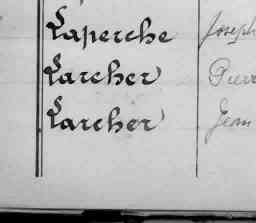 Laperche Joseph
Larcher Pierr
Larcher Jean